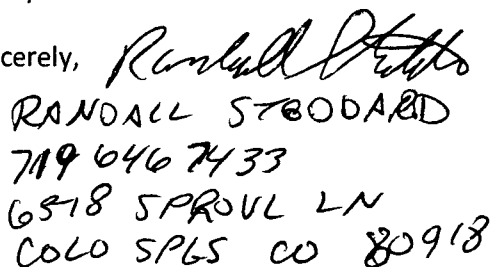 cerely, Randall
RANDALL STODDARD
719 646 7433
6518 SPROUL LN
COLO SPGS CO 80918